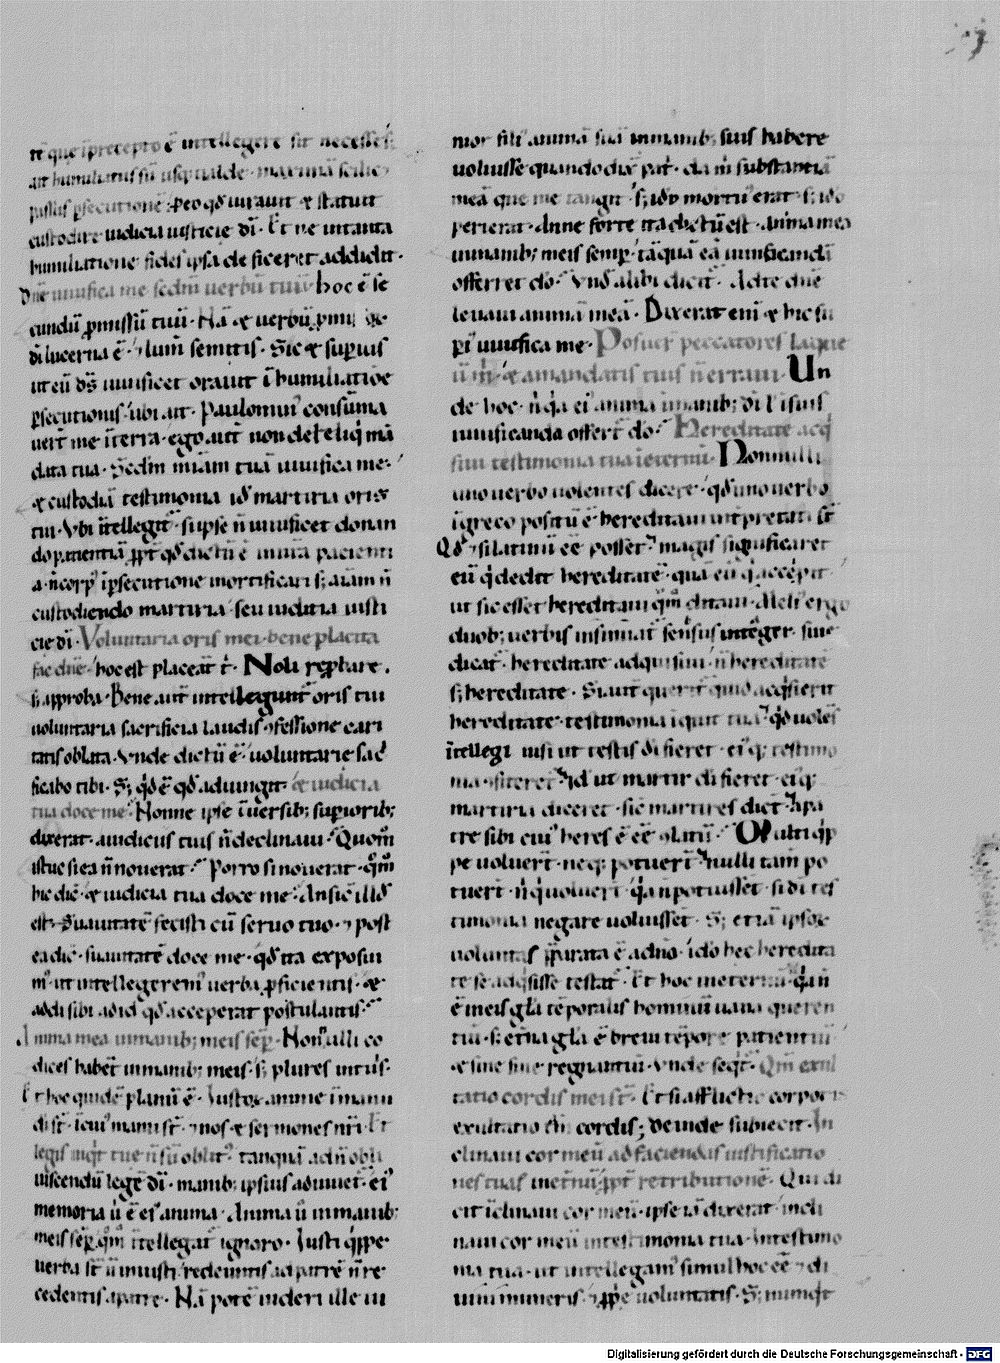 te que i precepto ē intellegere sit necesse·
ait humiliatus sū usq; ualde · maximā scilic
passus psecutionē · p eo qđ iurauit & statuit
custodire iudicia iusticie dī · Et ne in tanta
humiliatione fides ipsa deficeret addidit ·
Dn̄e uiuifica me scdm̄ uerbū tuū · hoc ē se
cundū pmissū tuū · Nā & uerbū pmis
di lucerna ē · lum̄ semitis · Sic & superius
ut eū ds̄ uiuificet orauit ī humiliatiōe
psecutionis · ubi ait · Paulominꝰ consūma
uert̄ me ī terra · ego aut̄ non dereliq̇ mā
data tua · Scdm̄ miā̄m tuā uiuifica me ·
& custodiā testimonia
tui · Ubi ītellegit̄ · si ipse n̄ uiuificet donan
do patientiā · ppt̄ qđ dictū ē
a · n̄ corpꝰ ī psecutione mortificari s; aīam n̄
custodiendo martiria seu iudicia iusti
cie dī · Voluntaria oris mei bene placita
fac dn̄e · hoc est placeāt t̄ · Noli reptare ·
s; approba · Bene aut̄ intellegunt̄ oris tui
uoluntaria sacrificia laudis ꝯfessione cari
tatis oblata · Unde dictū ē · uoluntarie sac̄
ficabo tibi · S; qđ ē qđ adiungit · & iudicia
tua doce me · Nonne ipse ī uersib; superiorib;
dixerat · a iudiciis tuis n̄ declinaui · Quom̄
istuc si ea n̄ nouerat · Porro si nouerat · qm̄
hic dic̄ · & iudicia tua doce me · An sic illđ
est · Suauitatē fecisti cū seruo tuo · ⁊ post
ea dic̄ · suauitatē doce me · qđ ita exposui
mꝰ · ut intellegerem̄ꝰ uerba pficientis · &
addi sibi ad id qđ acceperat postulantis ·
Anima mea in manib; meis semp̄ · Nonnulli co
dices habēt in manib; meis · s; plures in tuis ·
Et hoc quidē planū ē · Iustoꝝ anime ī manu
dī st̄ · ī cuiꝰ manu st̄ · ⁊ nos & sermones n̄ri · Et
legis tue n̄ sū oblitꝰ · tanquā ad n̄ obli
uiscendū legē dī · manib; ipsius adiuuet̄ · eiꝰ
memoria ū ē eiꝰ anima · Anima ū in manib;
meis semp̄ · qm̄ ītellegat̄ ignoro · Iusti q̄ppe
uerba st̄ n̄ iniusti · redeuntis ad patrē n̄ re
cedentis a patre · Nā potē uideri ille iu
nior filiꝰ animā suā in manib; suis habere
uoluisse quando dix̄ pat̄ · da m̄ substantiā
meā que me tangit · s; idō mortuꝰ erat · s; idō
perierat · Anne forte ita dictū est · Anima mea
in manib; meis semp̄ · tā̄quā eā uiuificandā
offerret dō · Unđ alibi dicit̄ · Ad te dn̄e
leuaui animā meā · Dixerat enī & hic su
pi uiuifica me · Posuer̄ peccatores laque
ū m̄ · & a mandatis tuis n̄ erraui · Un
de hoc · n̄ q̄a eiꝰ anima ī manib; dī
uiuificanda offert̄ dō · Hereditate acq̇
siui testimonia tua ī eternū · Nonnulli
uno uerbo uolentes dicere · qđ uno uerbo
ī greco positū ē hereditaui int̄pretati st̄
Qđ ⁊ si latinū eē posset · magis significaret
eū q̇ dedit hereditatē · quā eū q̇ accepit ·
ut sic esset hereditaui qm̄ ditaui · Meliꝰ ergo
duob; uerbis insinuat̄ sensus integer · siue
dicat̄ · hereditate adquisiui · n̄ hereditatē
s; hereditate · Si aut̄ querit̄ quid acq̇sierit
hereditate · testimonia īquit tua · qđ uoleš
ītellegi nisi ut testis dī fieret · eiꝰ q; testimo
nia ꝯfiteret̄ · id ut martir dī fieret · eiꝰ q;
martiria diceret · sic̄ martires dic̄t · a pa
tre sibi cuiꝰ heres ē eē ꝯlatū · Multi q̄p
pe uoluer̄t · neq; potuer̄t · nulli tam̄ po
tuer̄t · n̄ q̇ uoluer̄t · q̄a n̄ potuissēt · si dī tes
timonia negare uoluissēt · S; etiā ipsoꝝ
uoluntas pparata ē a dn̄o · idō hec heredita
te se adq̇sisse testat̄ · Et hoc in eternū · q̄a n̄
ē in eis gl̄a tēporalis hominū uana queren
tiū · s; et̄na gl̄a ē breui tēpore patientiū
& sine fine regnantiū · Unde seq̇t̄ · Qm̄ exul
tatio cordis mei st̄ · Et si afflictio corporis
exultatio tn̄ cordis; Deinde subiecit · In
clinaui cor meū ad faciendas iustificatio
nes tuas in et̄nū · ppt̄ retributionē · Qui di
cit īclinaui cor meū · ipse iā dixerat · incli
na cor meū in testimonia tua · In testimo
nia tua · ut intellegam̄ꝰ simul hoc eē ⁊ di
uini muneris · ⁊ pp̄e uoluntatis · S; nunqd̄